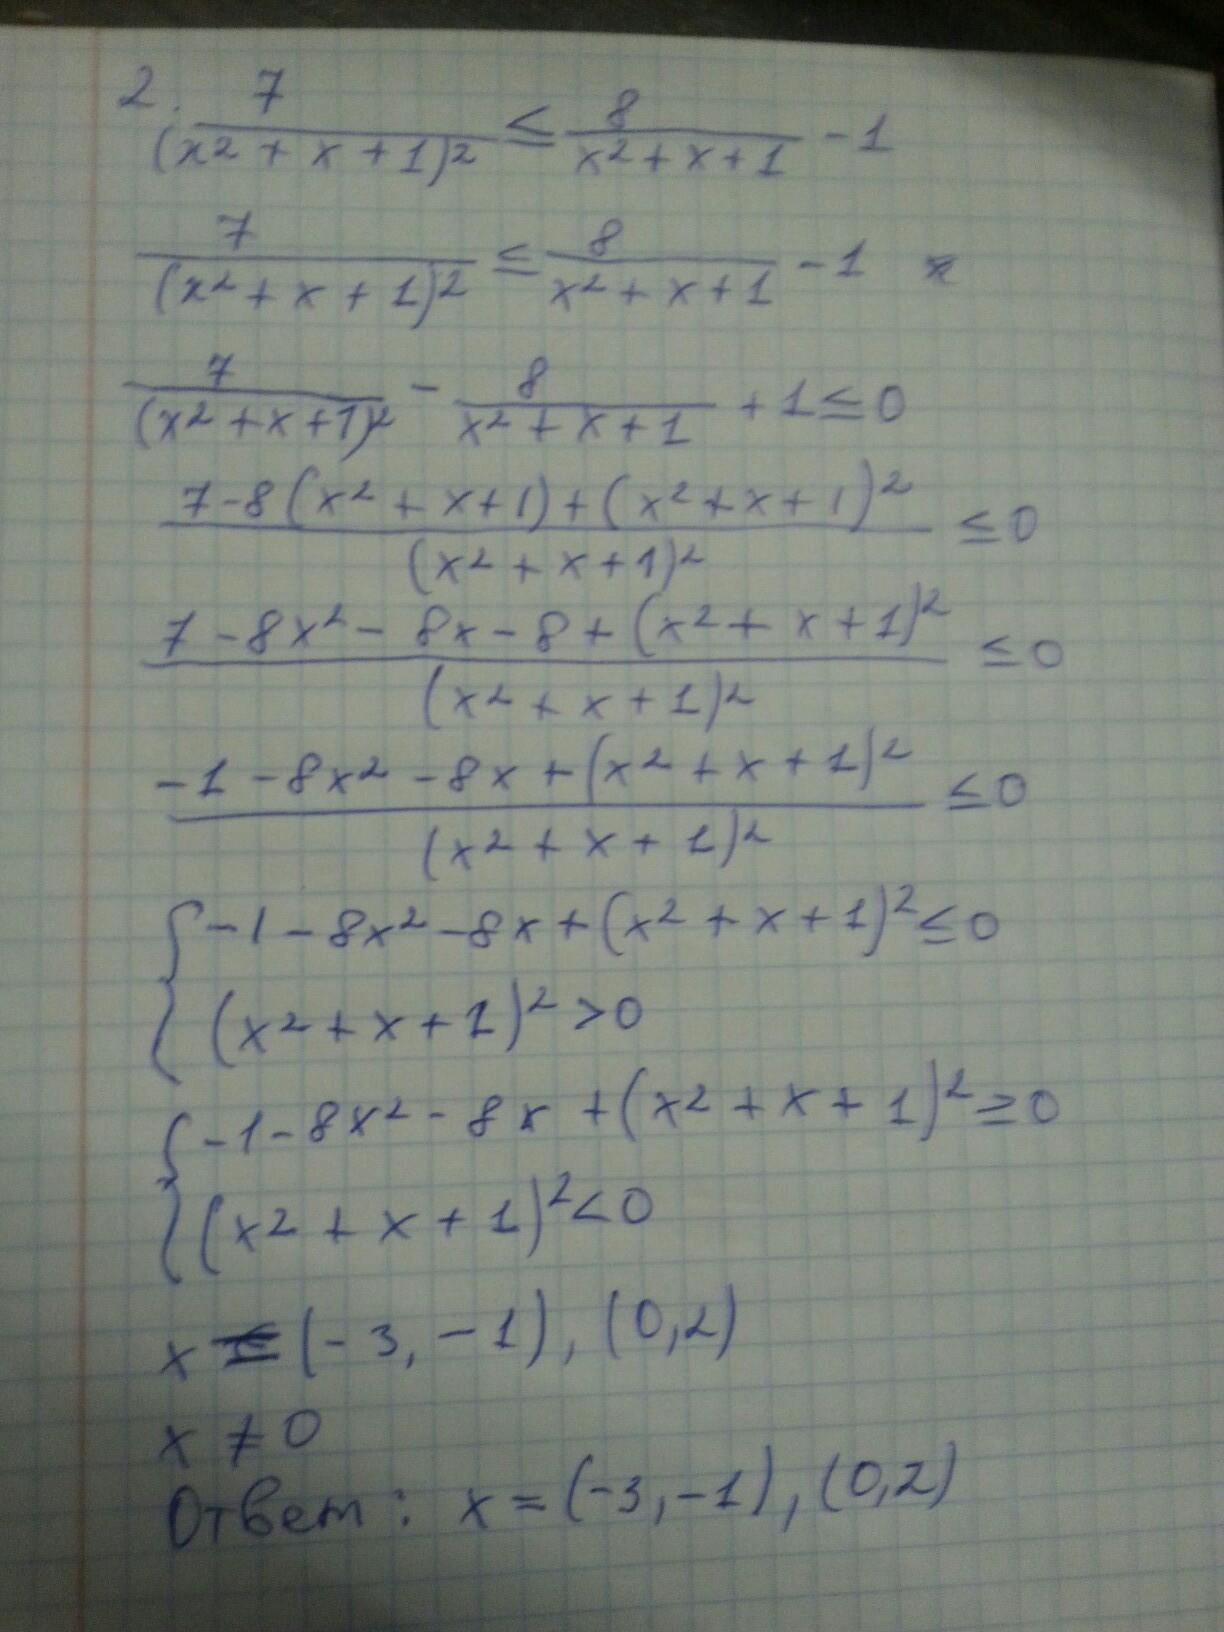 2. 7/(x² + x + 1)² ≤ 8/(x² + x + 1) - 1
7/(x² + x + 1)² ≤ 8/(x² + x + 1) - 1
7/(x² + x + 1)² - 8/(x² + x + 1) + 1 ≤ 0
(7 - 8(x² + x + 1) + (x² + x + 1)²)/(x² + x + 1)² ≤ 0
(7 - 8x² - 8x - 8 + (x² + x + 1)²)/(x² + x + 1)² ≤ 0
(-1 - 8x² - 8x + (x² + x + 1)²)/(x² + x + 1)² ≤ 0
{ -1 - 8x² - 8x + (x² + x + 1)² ≤ 0
(x² + x + 1)² > 0
{ -1 - 8x² - 8x + (x² + x + 1)² ≥ 0
(x² + x + 1)² < 0
x = (-3, -1), (0,2)
x ≠ 0
Ответ: x = (-3, -1), (0,2)